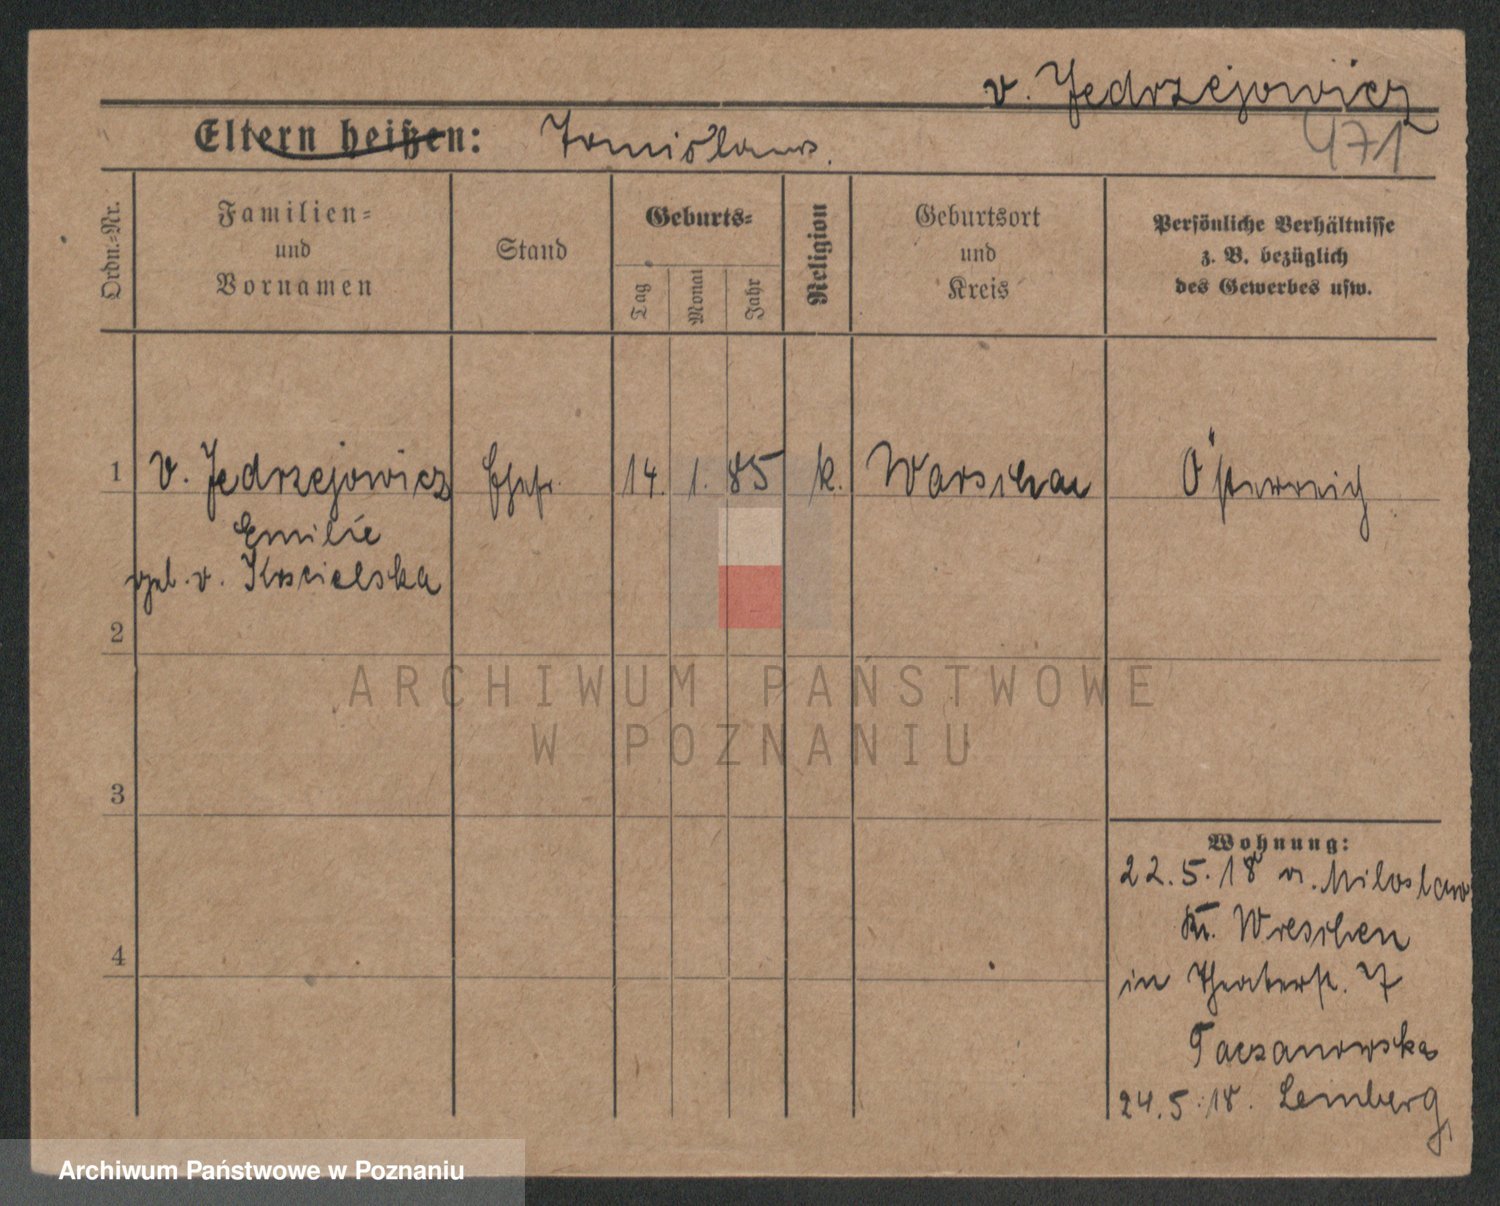 v. Jedrzejowicz
Eltern heißen: Tomisława.
471
Ordn.-Nr.
Familien-
und
Vornamen
Stand
Geburts-
Tag
Monat
Jahr
Religion
Geburtsort
und
Kreis
Persönliche Verhältnisse
z. B. bezüglich
des Gewerbes usw.
1 v. Jedrzejowicz Ehefr. 14. 1. 85 k. Warschau Österreich
Emilie
geb. v. Koscielska
2
ARCHIWUM PAŃSTWOWE
W POZNANIU
3
Wohnung:
22.5.18 v. Miloslaw
Kr. Wreschen
4
in Theaterst. 7
Taczanowska
24.5.18. Lemberg
Archiwum Państwowe w Poznaniu